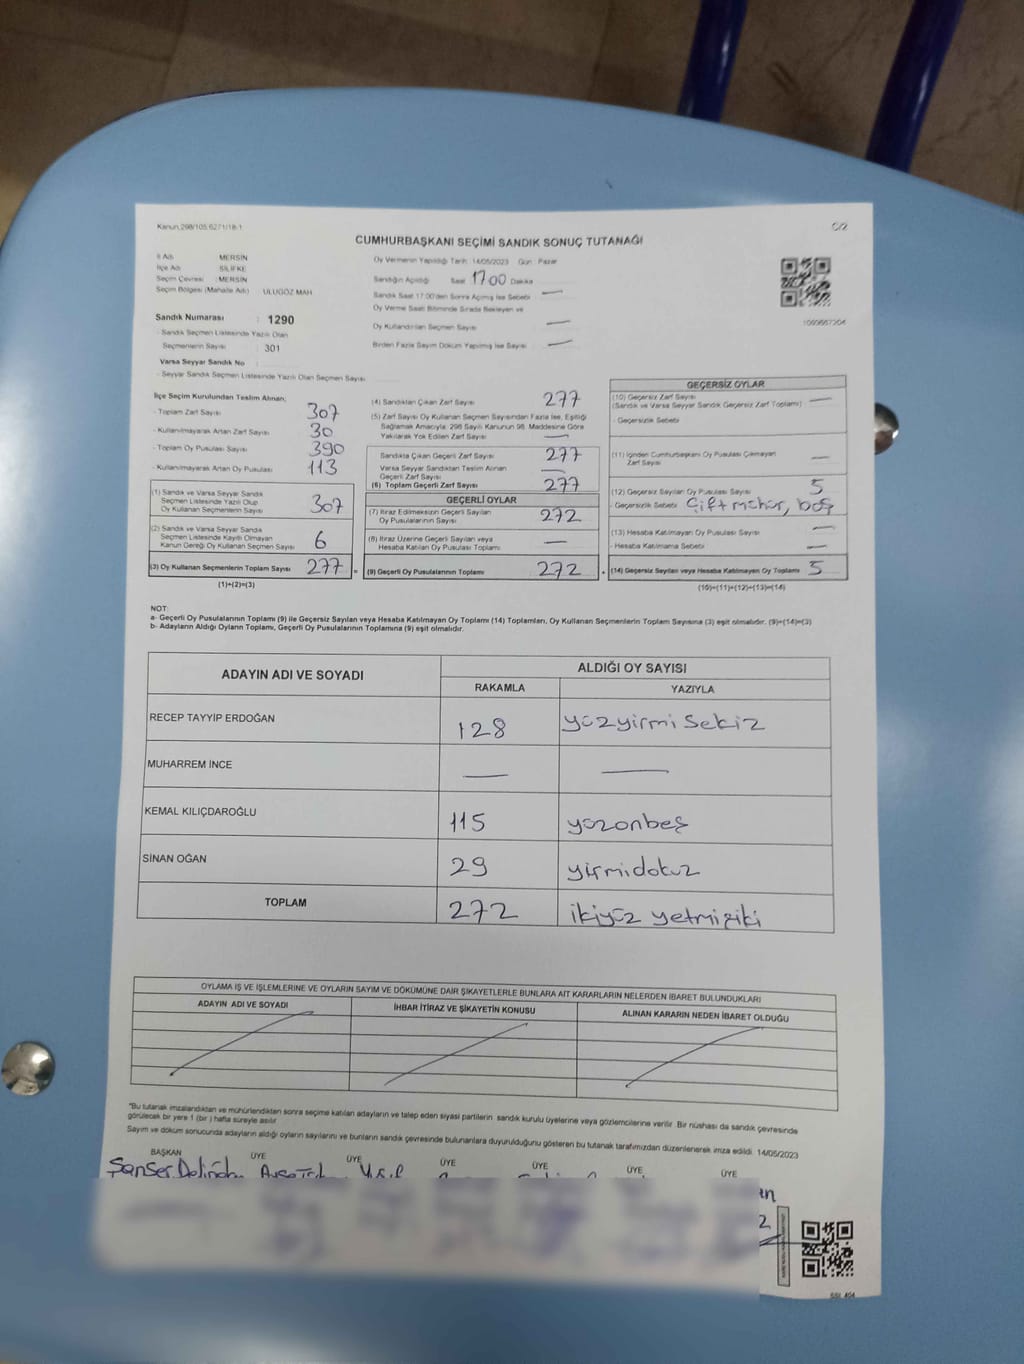 Kanun,298/105,6271/18-1
C/2
CUMHURBAŞKANI SEÇİMİ SANDIK SONUÇ TUTANAĞI
İl Adı MERSİN
İlçe Adı SİLİFKE
Seçim Çevresi : MERSİN
Seçim Bölgesi (Mahalle Adı) : ULUGÖZ MAH
Sandık Numarası : 1290
- Sandık Seçmen Listesinde Yazılı Olan
Seçmenlerin Sayısı : 301
Varsa Seyyar Sandık No
- Seyyar Sandık Seçmen Listesinde Yazılı Olan Seçmen Sayısı
Oy Vermenin Yapıldığı Tarih: 14/05/2023 Gün : Pazar
Sandığın Açıldığı Saat 17.00 Dakika
Sandık Saat 17.00'den Sonra Açılmış İse Sebebi —
Oy Verme Saati Bitiminde Sırada Bekleyen ve
Oy Kullandırılan Seçmen Sayısı —
Birden Fazla Sayım Döküm Yapılmış İse Sayısı —
1090687204
İlçe Seçim Kurulundan Teslim Alınan;
- Toplam Zarf Sayısı 307
- Kullanılmayarak Artan Zarf Sayısı 30
- Toplam Oy Pusulası Sayısı 390
- Kullanılmayarak Artan Oy Pusulası 113
(1) Sandık ve Varsa Seyyar Sandık
Seçmen Listesinde Yazılı Olup
Oy Kullanan Seçmenlerin Sayısı 307
(2) Sandık ve Varsa Seyyar Sandık
Seçmen Listesinde Kayıtlı Olmayan
Kanun Gereği Oy Kullanan Seçmen Sayısı 6
(3) Oy Kullanan Seçmenlerin Toplam Sayısı 277
(1)+(2)=(3)
(4) Sandıktan Çıkan Zarf Sayısı 277
(5) Zarf Sayısı Oy Kullanan Seçmen Sayısından Fazla İse, Eşitliği
Sağlamak Amacıyla; 298 Sayılı Kanunun 98. Maddesine Göre
Yakılarak Yok Edilen Zarf Sayısı —
Sandıkta Çıkan Geçerli Zarf Sayısı 277
Varsa Seyyar Sandıktan Teslim Alınan
Geçerli Zarf Sayısı —
(6) Toplam Geçerli Zarf Sayısı 277
GEÇERLİ OYLAR
(7) İtiraz Edilmeksizin Geçerli Sayılan
Oy Pusulalarının Sayısı 272
(8) İtiraz Üzerine Geçerli Sayılan veya
Hesaba Katılan Oy Pusulası Toplamı —
= (9) Geçerli Oy Pusulalarının Toplamı 272
GEÇERSİZ OYLAR
(10) Geçersiz Zarf Sayısı —
(Sandık ve Varsa Seyyar Sandık Geçersiz Zarf Toplamı)
- Geçersizlik Sebebi
(11) İçinden Cumhurbaşkanı Oy Pusulası Çıkmayan
Zarf Sayısı —
(12) Geçersiz Sayılan Oy Pusulası Sayısı 5
- Geçersizlik Sebebi Çift mühür, boş
(13) Hesaba Katılmayan Oy Pusulası Sayısı —
- Hesaba Katılmama Sebebi —
+ (14) Geçersiz Sayılan veya Hesaba Katılmayan Oy Toplamı 5
(10)+(11)+(12)+(13)=(14)
NOT:
a- Geçerli Oy Pusulalarının Toplamı (9) ile Geçersiz Sayılan veya Hesaba Katılmayan Oy Toplamı (14) Toplamları, Oy Kullanan Seçmenlerin Toplam Sayısına (3) eşit olmalıdır. (9)+(14)=(3)
b- Adayların Aldığı Oyların Toplamı, Geçerli Oy Pusulalarının Toplamına (9) eşit olmalıdır.
ADAYIN ADI VE SOYADI
ALDIĞI OY SAYISI
RAKAMLA YAZIYLA
RECEP TAYYİP ERDOĞAN 128 yüzyirmi sekiz
MUHARREM İNCE — —
KEMAL KILIÇDAROĞLU 115 yüzonbeş
SİNAN OĞAN 29 yirmidokuz
TOPLAM 272 ikiyüz yetmişiki
OYLAMA İŞ VE İŞLEMLERİNE VE OYLARIN SAYIM VE DÖKÜMÜNE DAİR ŞİKAYETLERLE BUNLARA AİT KARARLARIN NELERDEN İBARET BULUNDUKLARI
ADAYIN ADI VE SOYADI İHBAR İTİRAZ VE ŞİKAYETİN KONUSU ALINAN KARARIN NEDEN İBARET OLDUĞU
"Bu tutanak imzalandıktan ve mühürlendikten sonra seçime katılan adayların ve talep eden siyasi partilerin, sandık kurulu üyelerine veya gözlemcilerine verilir. Bir nüshası da sandık çevresinde
görülecek bir yere 1 (bir) hafta süreyle asılır.
Sayım ve döküm sonucunda adayların aldığı oyların sayılarını ve bunların sandık çevresinde bulunanlara duyurulduğunu gösteren bu tutanak tarafımızdan düzenlenerek imza edildi. 14/05/2023
BAŞKAN ÜYE ÜYE ÜYE ÜYE ÜYE ÜYE
SSL 404